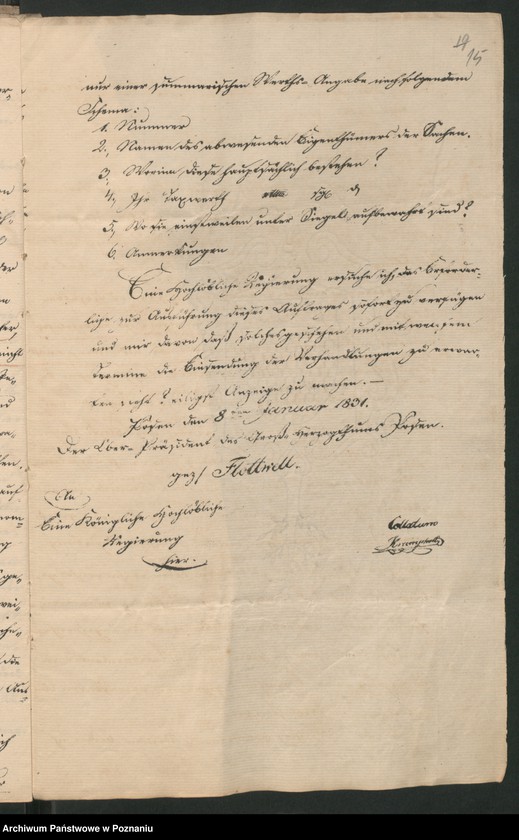 14
15
nur einer summarischen Werths-Angabe nach folgendem
Schema:
1. Nummer
2, Namen des abwesenden Eigenthümers der Sachen.
3, Worin diese hauptsächlich bestehen?
4, Ihr Taxwerth rtlr sgr d
5, Wo sie einstweilen unter Siegel aufbewahrt sind?
6, Anmerkungen
Eine Hochlöbliche Regierung ersuche ich, das Erforder-
liche zur Ausführung dieses Auftrages sofort zu verfügen
und mir davon daß solches geschehen und mit welchem
Termine die Einsendung der Verhandlungen zu erwar-
ten steht? eiligst Anzeige zu machen. —
Posen den 8 ten Januar 1831.
Der Ober-Präsident des Großherzogthums Posen.
gez/ Flottwell.
An
Eine Königliche Hochlöbliche
Regierung
hier.
Collatum
Archiwum Państwowe w Poznaniu